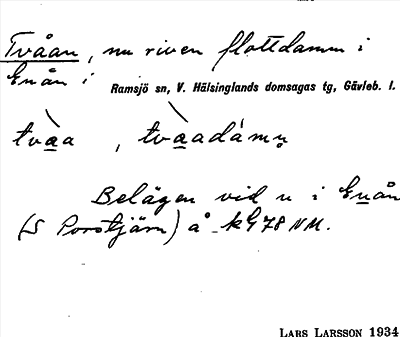 Tvåan, nu riven flottdamm i
Enån i Ramsjö sn, V. Hälsinglands domsagas tg, Gävleb. l.
tvàa , tvàadámn̥
Belägen vid n i Enån
(S Porstjärn) å kG 78 NM.
LARS LARSSON 1934